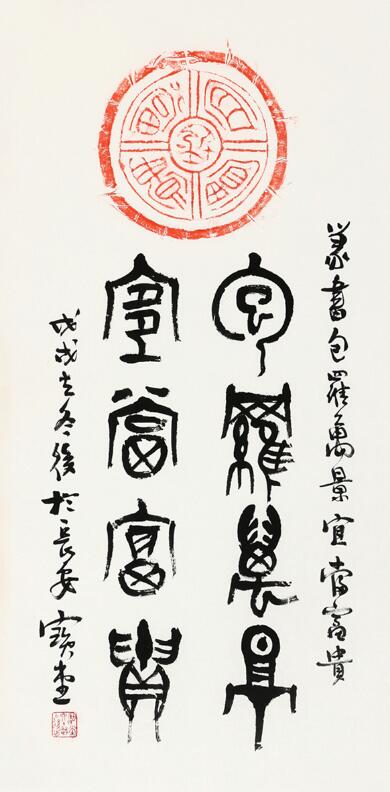 篆書包羅萬景宜當富貴
包羅萬景
宜當富貴
戊戌立冬後於長安寶